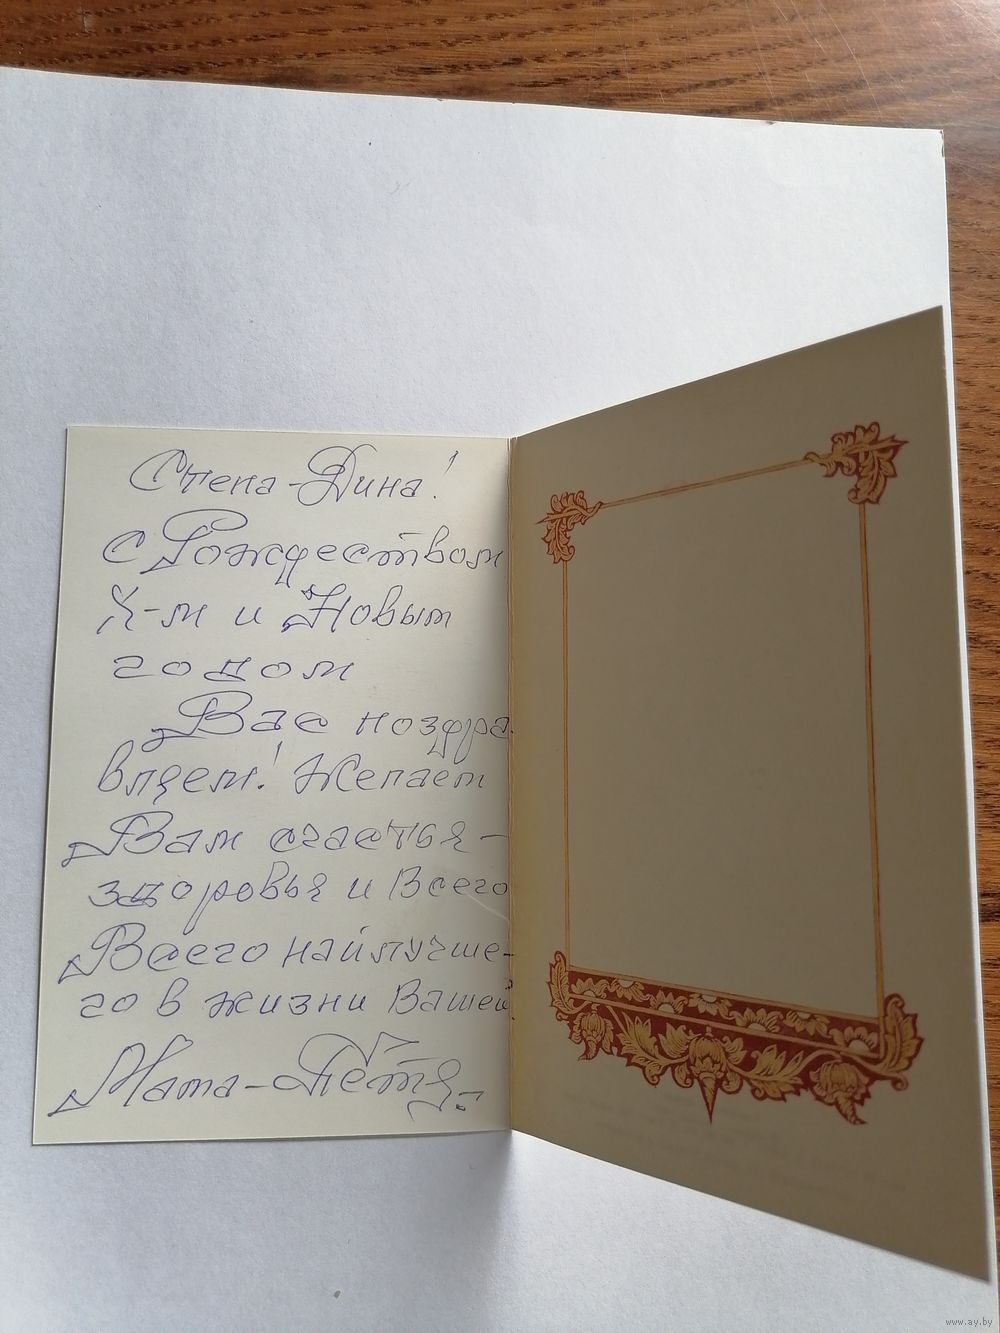 Степа-Дина!
с Рождеством
Х-м и Новым
годом
Вас поздра
вляем! Желаем
Вам счастья-
здоровья и Всего
Всего найлучше-
го в жизни Вашей
Мата-Петя.
www.ay.by